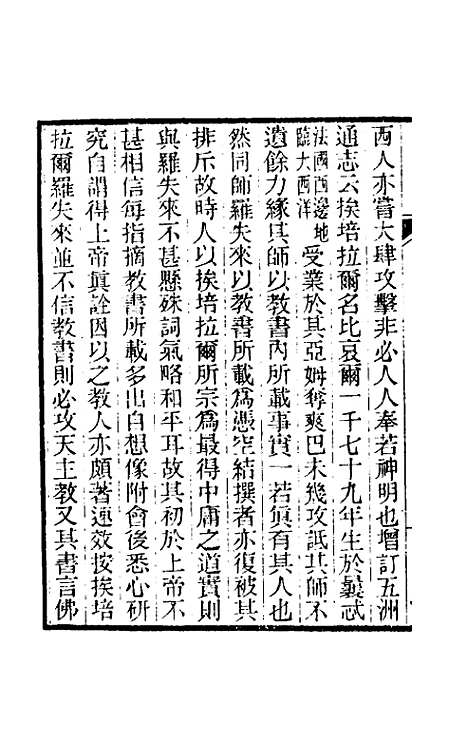 西人亦嘗大肆攻擊非必人人奉若神明也增訂五洲
通志云挨培拉爾名比哀爾一千七十九年生於曩忒
法國西邊地臨大西洋受業於其亞姆奪爽巴未幾攻詆其師不
遺餘力緣其師以教書內所載事實一若眞有其人也
然同師羅失來以教書所載爲憑空結撰者亦復被其
排斥故時人以挨培拉爾所宗爲最得中庸之道實則
與羅失來不甚懸殊詞氣略和平耳故其初於上帝不
甚相信每指摘教書所載多出自想像附會後悉心研
究自謂得上帝眞詮因以之教人亦頗著速效按挨培
拉爾羅失來並不信教書則必攻天主教又其書言佛